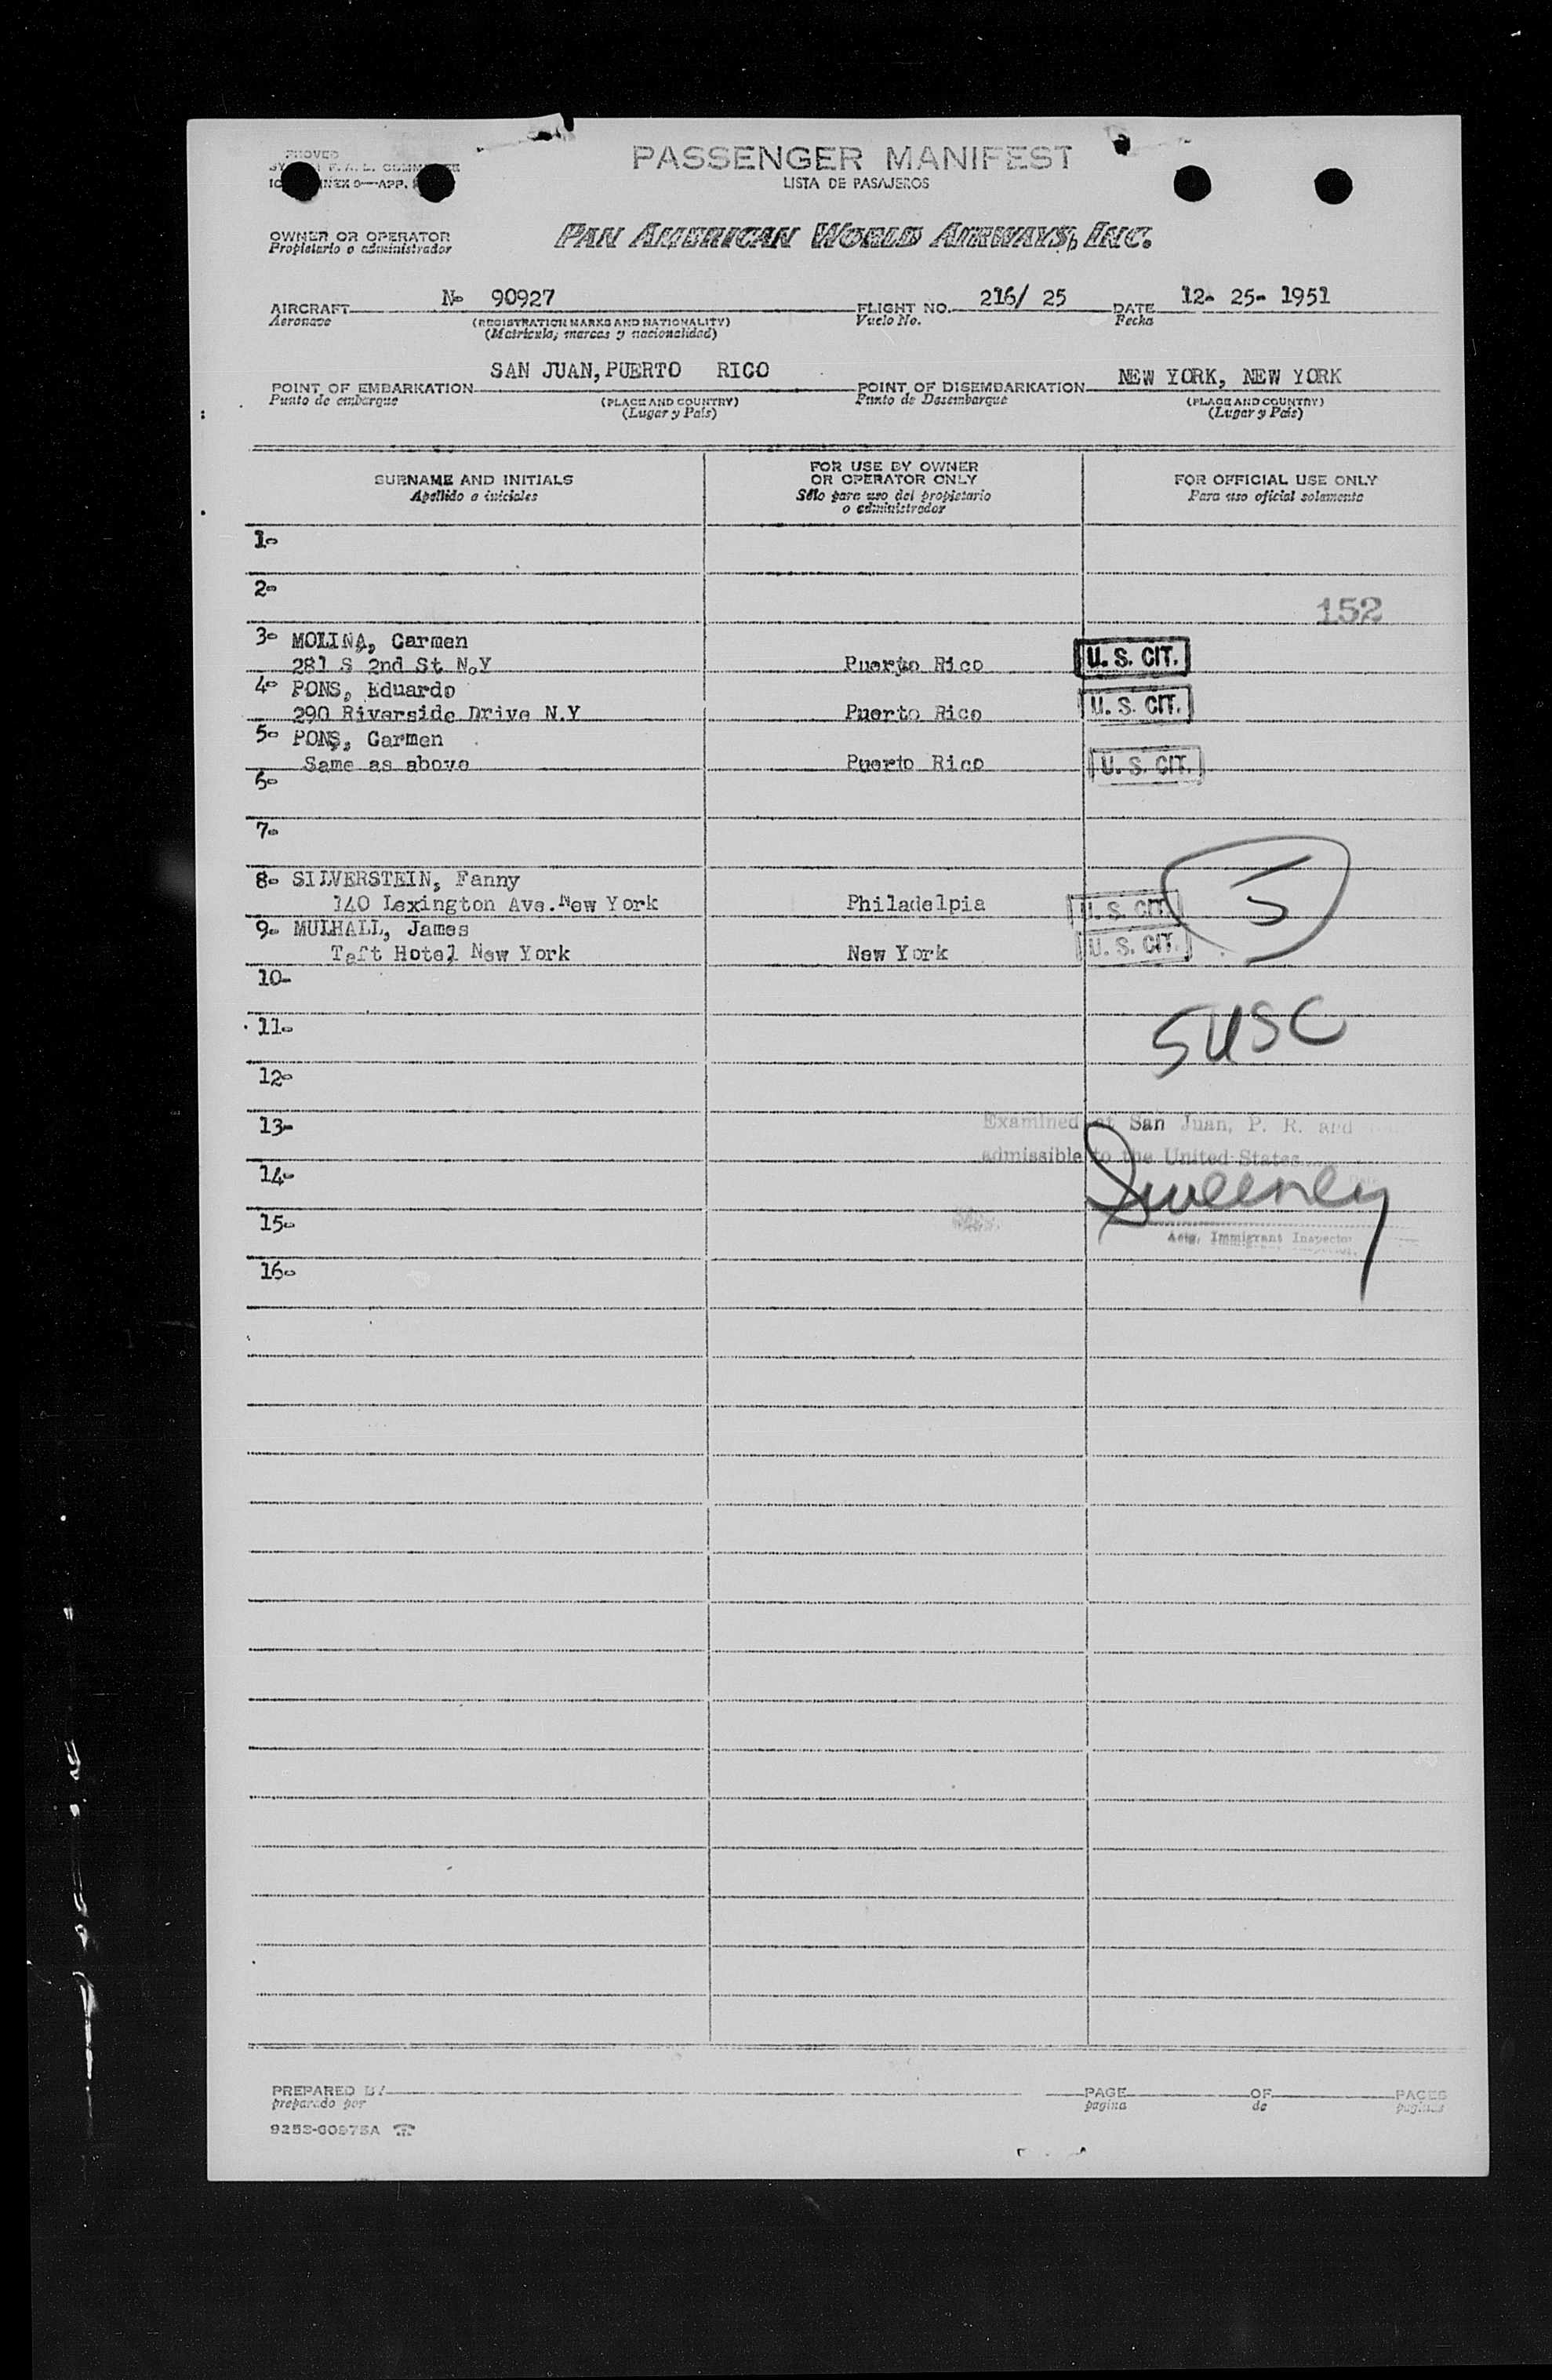 PASSENGER MANIFEST
LISTA DE PASAJEROS
OWNER OR OPERATOR
Propietario o administrador
PAN AMERICAN WORLD AIRWAYS, INC.
AIRCRAFT No 90927 FLIGHT NO. 216/ 25 DATE 12- 25- 1951
Aeronave (REGISTRATION MARKS AND NATIONALITY) Vuelo No. Fecha
(Matrícula, marcas y nacionalidad)
POINT OF EMBARKATION SAN JUAN, PUERTO RICO POINT OF DISEMBARKATION NEW YORK, NEW YORK
Punto de embarque (PLACE AND COUNTRY) Punto de Desembarque (PLACE AND COUNTRY)
(Lugar y País) (Lugar y País)
SURNAME AND INITIALS FOR USE BY OWNER OR OPERATOR ONLY FOR OFFICIAL USE ONLY
Apellido e iniciales Sólo para uso del propietario o administrador Para uso oficial solamente
1-
2-
152
3- MOLINA, Carmen
281 S 2nd St N.Y Puerto Rico U. S. CIT.
4- PONS, Eduardo
290 Riverside Drive N.Y Puerto Rico U. S. CIT.
5- PONS, Carmen
Same as above Puerto Rico U. S. CIT.
6-
7-
8- SILVERSTEIN, Fanny
140 Lexington Ave. New York Philadelpia U. S. CIT. 5
9- MULHALL, James
Taft Hotel New York New York U. S. CIT.
10-
11- 5USC
12-
13- Examined at San Juan, P. R. and
14- admissible to the United States
Sweeney
15- Actg. Immigrant Inspector
16-
PREPARED BY PAGE OF PAGES
preparado por pagina de paginas